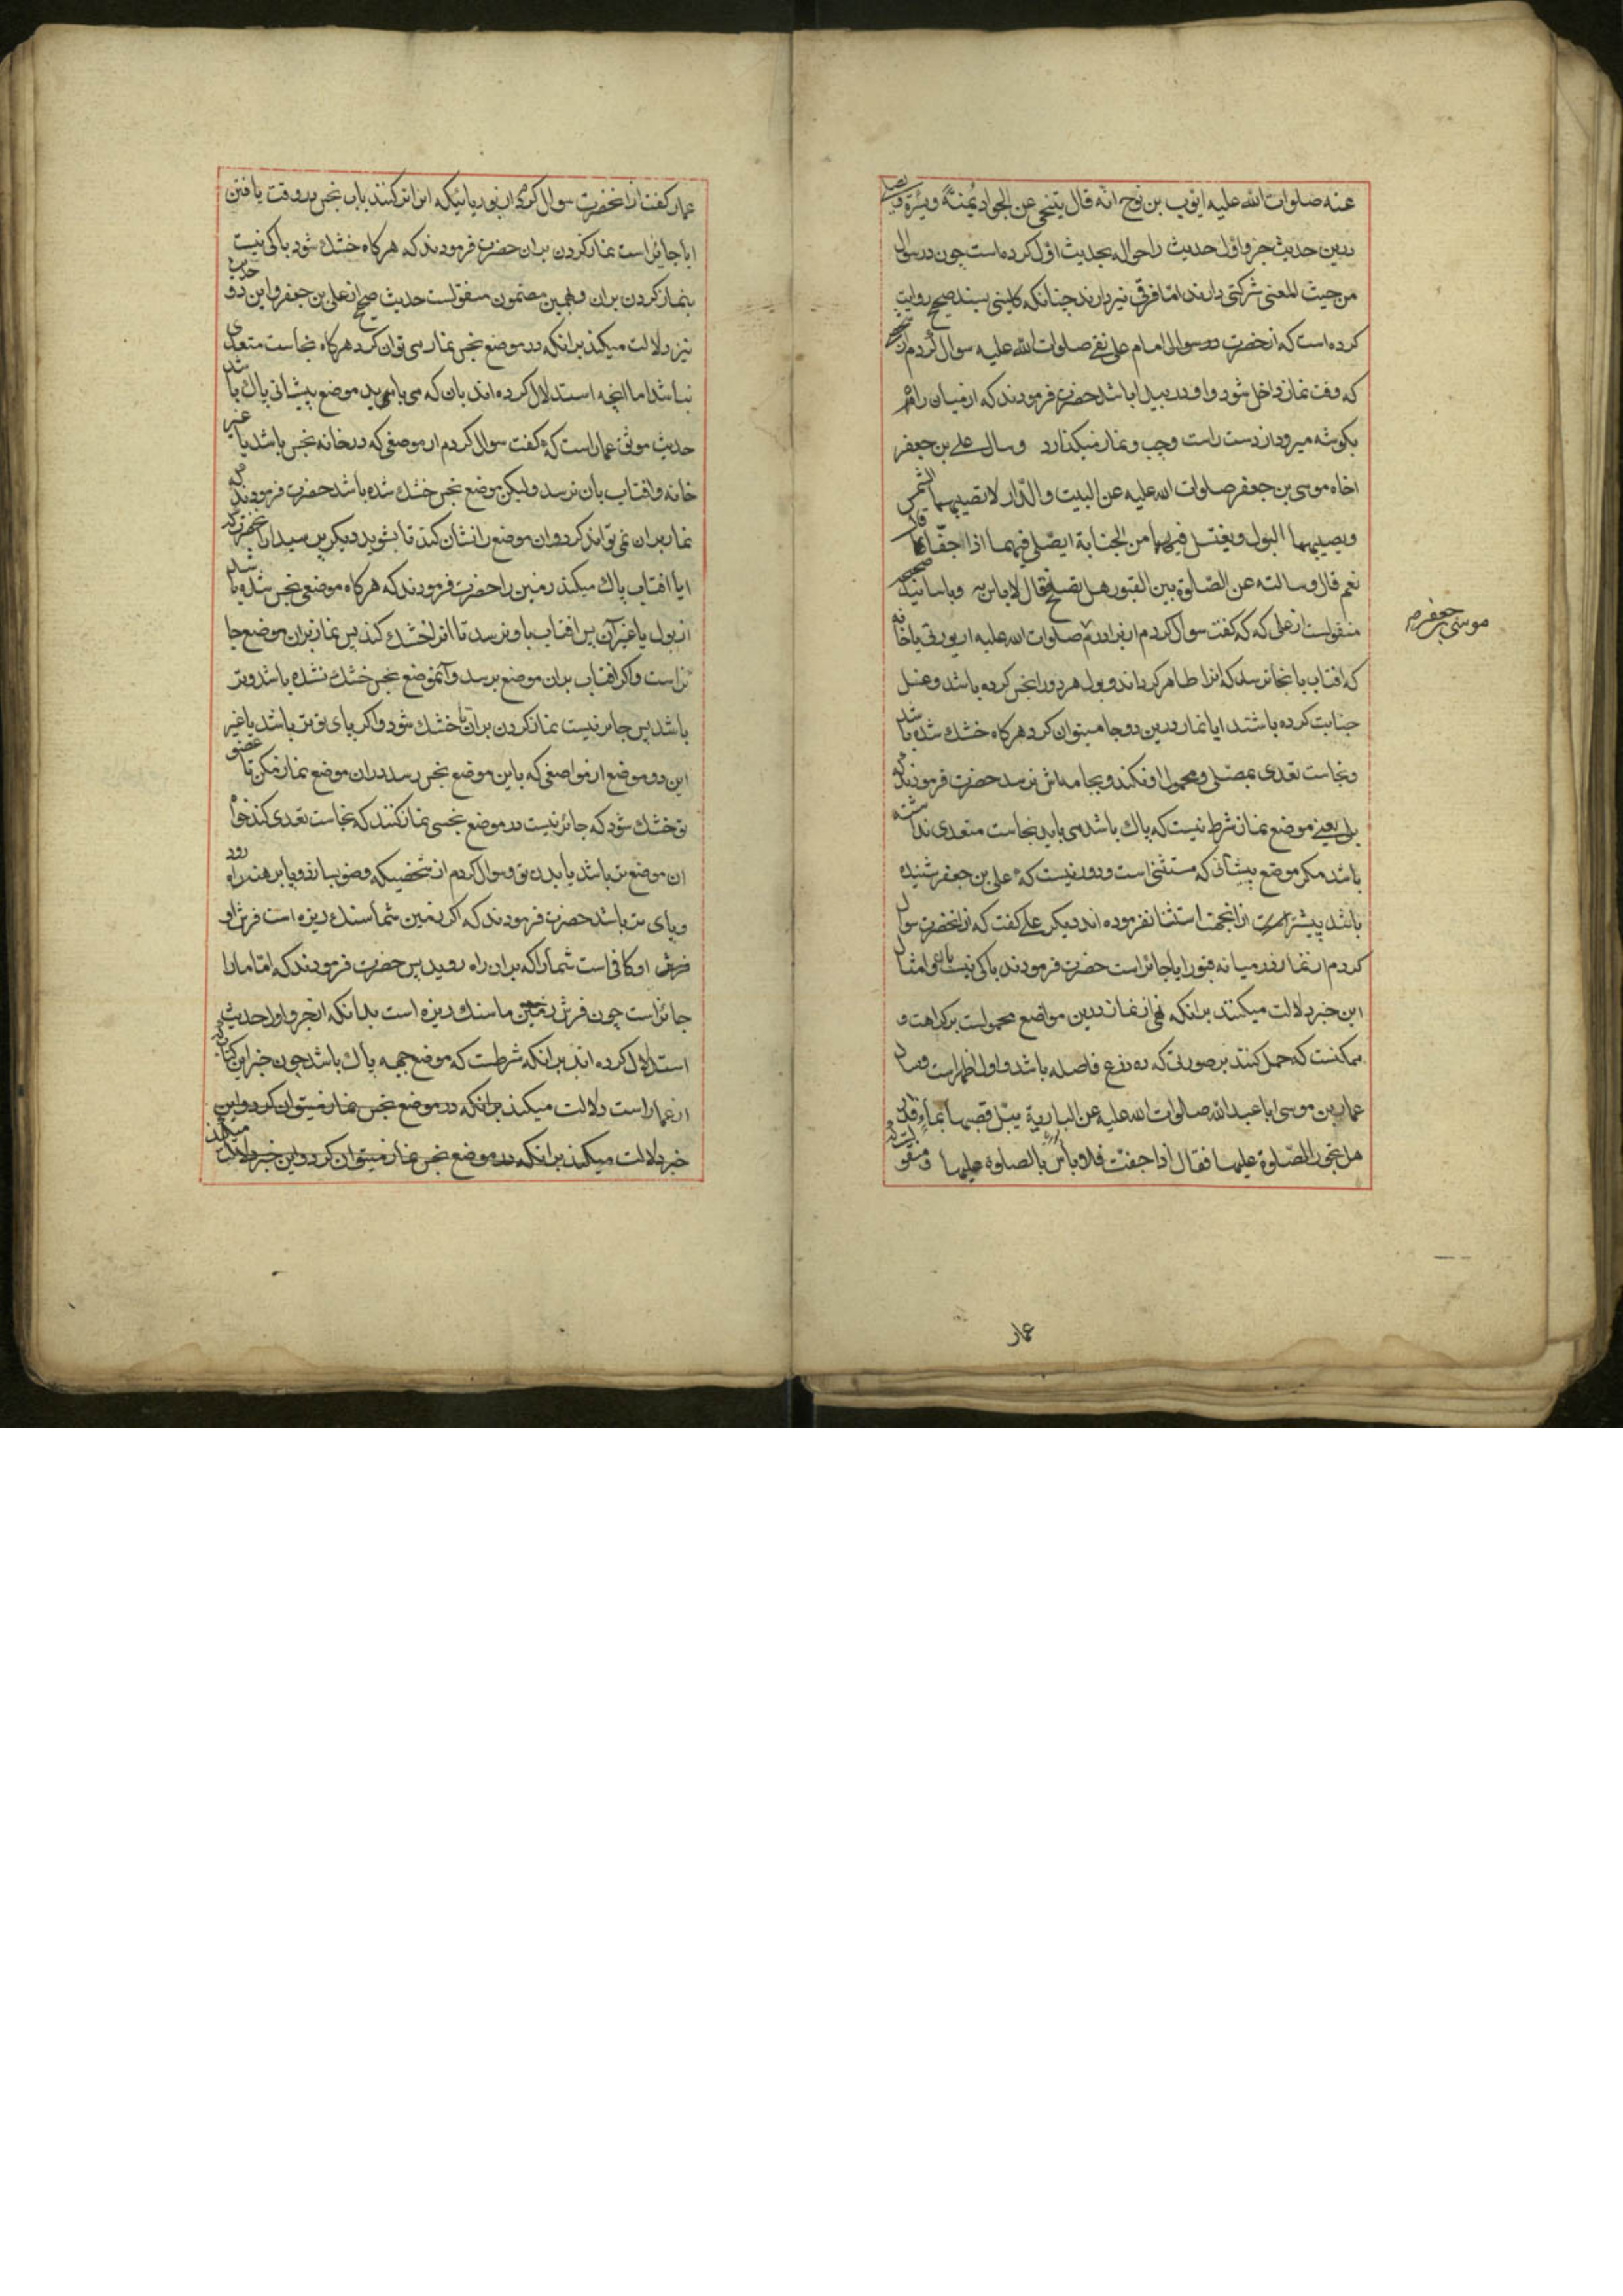 عنه صلوات الله علیه ایوب بن نوح انه قال یتنحی عن الجواد یمنة ویسرة ویصلی
درین حدیث جزو اول حدیث را حواله بحدیث اول کرده است چون در سوال
من حیث المعنی شرکتی دارند اما فرقی نیز دارند چنانکه کلینی بسند صحیح روایت
کرده است که انحضرت در سوال امام علی نقی صلوات الله علیه سوال کردم از
که وقت نماز داخل شود و او در بیدا باشد حضرت فرمودند که از میان راه
بکوشه میرود از دست راست وچپ ونماز میکذارد وسال علی بن جعفر
اخاه موسی بن جعفر صلوات الله علیه عن البیت والدار لا تصیبهما الشمس
ویصیبهما البول ویغتسل فیهما من الجنابة ایصلی فیهما اذا جفّا قال
نعم قال وسالته عن الصلوة بین القبور هل تصلح فقال لا باس به وباسانید صحیحه
منقولست از علی که که کفت سوال کردم از برادرم صلوات الله علیه از بیوتی یا خانه
موسی جعفر م
که افتاب بانجا نرسد که انرا طاهر کرداند وبول هر دو را نجس کرده باشد وغسل
جنابت کرده باشند ایا نماز درین دو جا میتوان کرد هرکاه خشك شده باشد
ونجاست تعدی بمصلی ومحمول او نکند وبجامه‌اش نرسد حضرت فرمودند که
بلی یعنی موضع نماز شرط نیست که پاك باشد می باید نجاست متعدی نداشته
باشد مکر موضع پیشانی که مستثنی است ودور نیست که علی بن جعفر شنیده
باشد پیشتر ازانجهت استثنا نفرموده اند دیکر علی کفت که از انحضرت سوال
کردم از نماز در میانه قبور ایا جائز است حضرت فرمودند باکی نیست وامثال
این خبر دلالت میکنند برانکه نهی از نماز درین مواضع محمولست بر کراهت و
ممکنست که حمل کنند بر صورتی که ده ذرع فاصله باشد واول اظهر است وسال
عمار بن موسی ابا عبدالله صلوات الله علیه عن الباریة یبلّ قصبها بماء قذر
هل تجوز الصلوة علیها فقال اذا جفّت فلا باس بالصلوة علیها ومنقولست که
عمار
عمار کفت از انحضرت سوال کردم از بوریائیکه انرا تر کنند باب نجس در وقت بافتن
ایا جائز است نماز کردن بران حضرت فرمودند که هرکاه خشك شود باکی نیست
بنماز کردن بران وبهمین مضمون منقولست حدیث صحیح از علی بن جعفر واین دو حدیث
نیز دلالت میکند برانکه در موضع نجس نماز می توان کرد هرکاه نجاست متعدی
نباشد اما انچه استدلال کرده اند بان که می باید موضع پیشانی پاك باشد
حدیث موثق عمار است که کفت سوال کردم از موضعی که در خانه نجس باشد یا غیر
خانه وافتاب بان نرسد ولیکن موضع نجس خشك شده باشد حضرت فرمودند که
نماز بران نمی تواند کرد وان موضع را نشان کند تا بشوید ودیکر پرسید از انحضرت که
ایا افتاب پاك میکند زمین را حضرت فرمودند که هرکاه موضعی نجس شده باشد
از بول یا غیر آن پس افتاب باو برسد تا انرا خشك کند پس نماز بران موضع جا
ئز است واکر افتاب بران موضع برسد وآنموضع نجس خشك نشده باشد وتر
باشد پس جائز نیست نماز کردن بران تا خشك شود واکر پای تو تر باشد یا غیر
این دو موضع از مواضعی که باین موضع نجس رسد دران موضع نماز مکن تا عضو
تو خشك شود که جائز نیست در موضع نجسی نماز کنند که نجاست تعدی کند خواه
ان موضع تر باشد یا بدن تو وسوال کردم از شخصیکه وضو بسازد وپا برهنه راه رود
وپای تر باشد حضرت فرمودند که اکر زمین شما سنك ریزه است فرش او
فرش او کافی است شما را که بران راه روید پس حضرت فرمودند که اما ما را
جائز است چون فرش زمین ما سنك ریزه است بدانکه انجزو اول حدیث
استدلال کرده اند برانکه شرطست که موضع جبهه پاك باشد چون خبر این
از عمار است دلالت میکند برانکه در موضع نجس نماز نمیتوان کرد واین
خبر دلالت میکند برانکه در موضع نجس نماز نمیتوان کرد واین خبر دلالت میکند